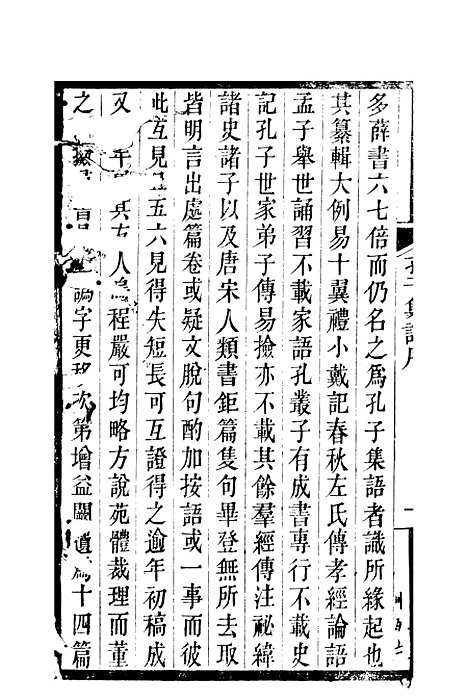 多薛書六七倍而仍名之爲孔子集語者識所緣起也
其纂輯大例易十翼禮小戴記春秋左氏傳孝經論語
孟子舉世誦習不載家語孔叢子有成書專行不載史
記孔子世家弟子傳易撿亦不載其餘羣經傳注祕緯
諸史諸子以及唐宋人類書鉅篇隻句畢登無所去取
皆明言出處篇卷或疑文脫句酌加按語或一事而彼
此互見五六見得失短長可互證得之逾年初稿成
又人程嚴可均略方說苑體裁理而董
之字更次第增益闕遺爲十四篇
孔子集語序
一